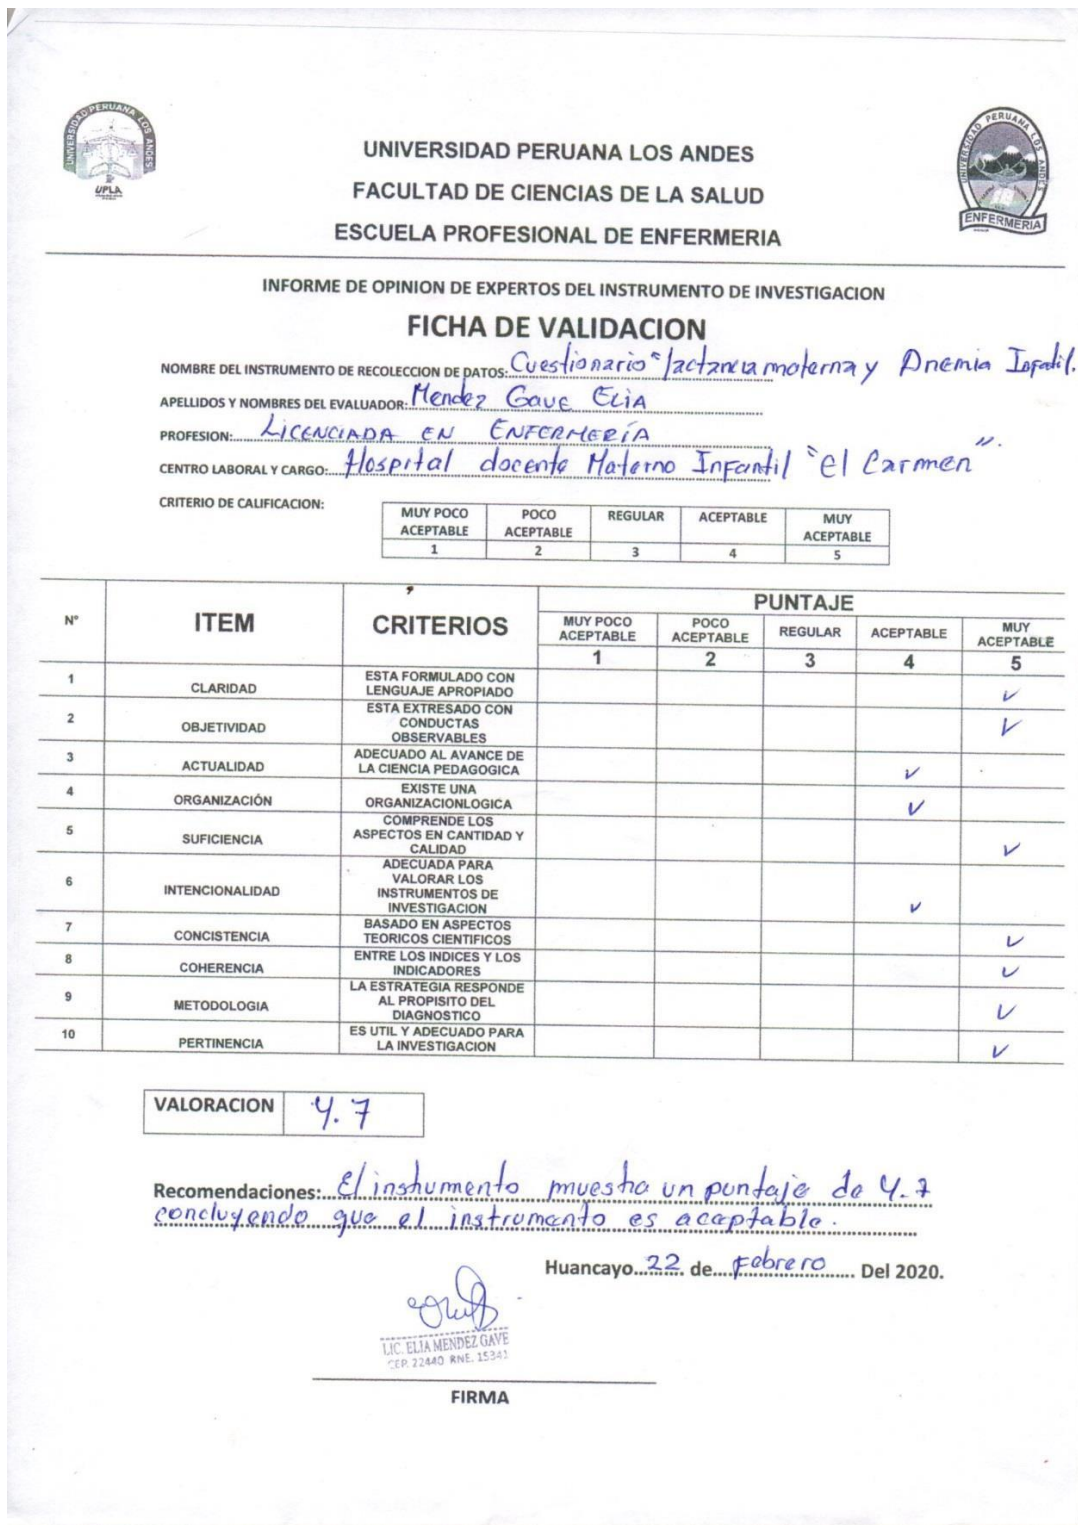 UNIVERSIDAD PERUANA LOS ANDES
UPLA
UNIVERSIDAD PERUANA LOS ANDES
ENFERMERIA
UNIVERSIDAD PERUANA LOS ANDES
FACULTAD DE CIENCIAS DE LA SALUD
ESCUELA PROFESIONAL DE ENFERMERIA
INFORME DE OPINION DE EXPERTOS DEL INSTRUMENTO DE INVESTIGACION
FICHA DE VALIDACION
NOMBRE DEL INSTRUMENTO DE RECOLECCION DE DATOS: Cuestionario "lactancia materna y Anemia Infatil.
APELLIDOS Y NOMBRES DEL EVALUADOR: Mendez Gave Elia
PROFESION: LICENCIADA EN ENFERMERÍA
CENTRO LABORAL Y CARGO: Hospital docente Materno Infantil "el Carmen".
CRITERIO DE CALIFICACION:
MUY POCO ACEPTABLE POCO ACEPTABLE REGULAR ACEPTABLE MUY ACEPTABLE
1 2 3 4 5
N° ITEM CRITERIOS PUNTAJE
MUY POCO ACEPTABLE POCO ACEPTABLE REGULAR ACEPTABLE MUY ACEPTABLE
1 2 3 4 5
1 CLARIDAD ESTA FORMULADO CON LENGUAJE APROPIADO ✓
2 OBJETIVIDAD ESTA EXTRESADO CON CONDUCTAS OBSERVABLES ✓
3 ACTUALIDAD ADECUADO AL AVANCE DE LA CIENCIA PEDAGOGICA ✓
4 ORGANIZACIÓN EXISTE UNA ORGANIZACIONLOGICA ✓
5 SUFICIENCIA COMPRENDE LOS ASPECTOS EN CANTIDAD Y CALIDAD ✓
6 INTENCIONALIDAD ADECUADA PARA VALORAR LOS INSTRUMENTOS DE INVESTIGACION ✓
7 CONCISTENCIA BASADO EN ASPECTOS TEORICOS CIENTIFICOS ✓
8 COHERENCIA ENTRE LOS INDICES Y LOS INDICADORES ✓
9 METODOLOGIA LA ESTRATEGIA RESPONDE AL PROPISITO DEL DIAGNOSTICO ✓
10 PERTINENCIA ES UTIL Y ADECUADO PARA LA INVESTIGACION ✓
VALORACION 4.7
Recomendaciones: El instrumento muestra un puntaje de 4.7
concluyendo que el instrumento es aceptable.
Huancayo 22 de Febrero Del 2020.
LIC. ELIA MENDEZ GAVE
CEP. 22440 RNE. 15341
FIRMA